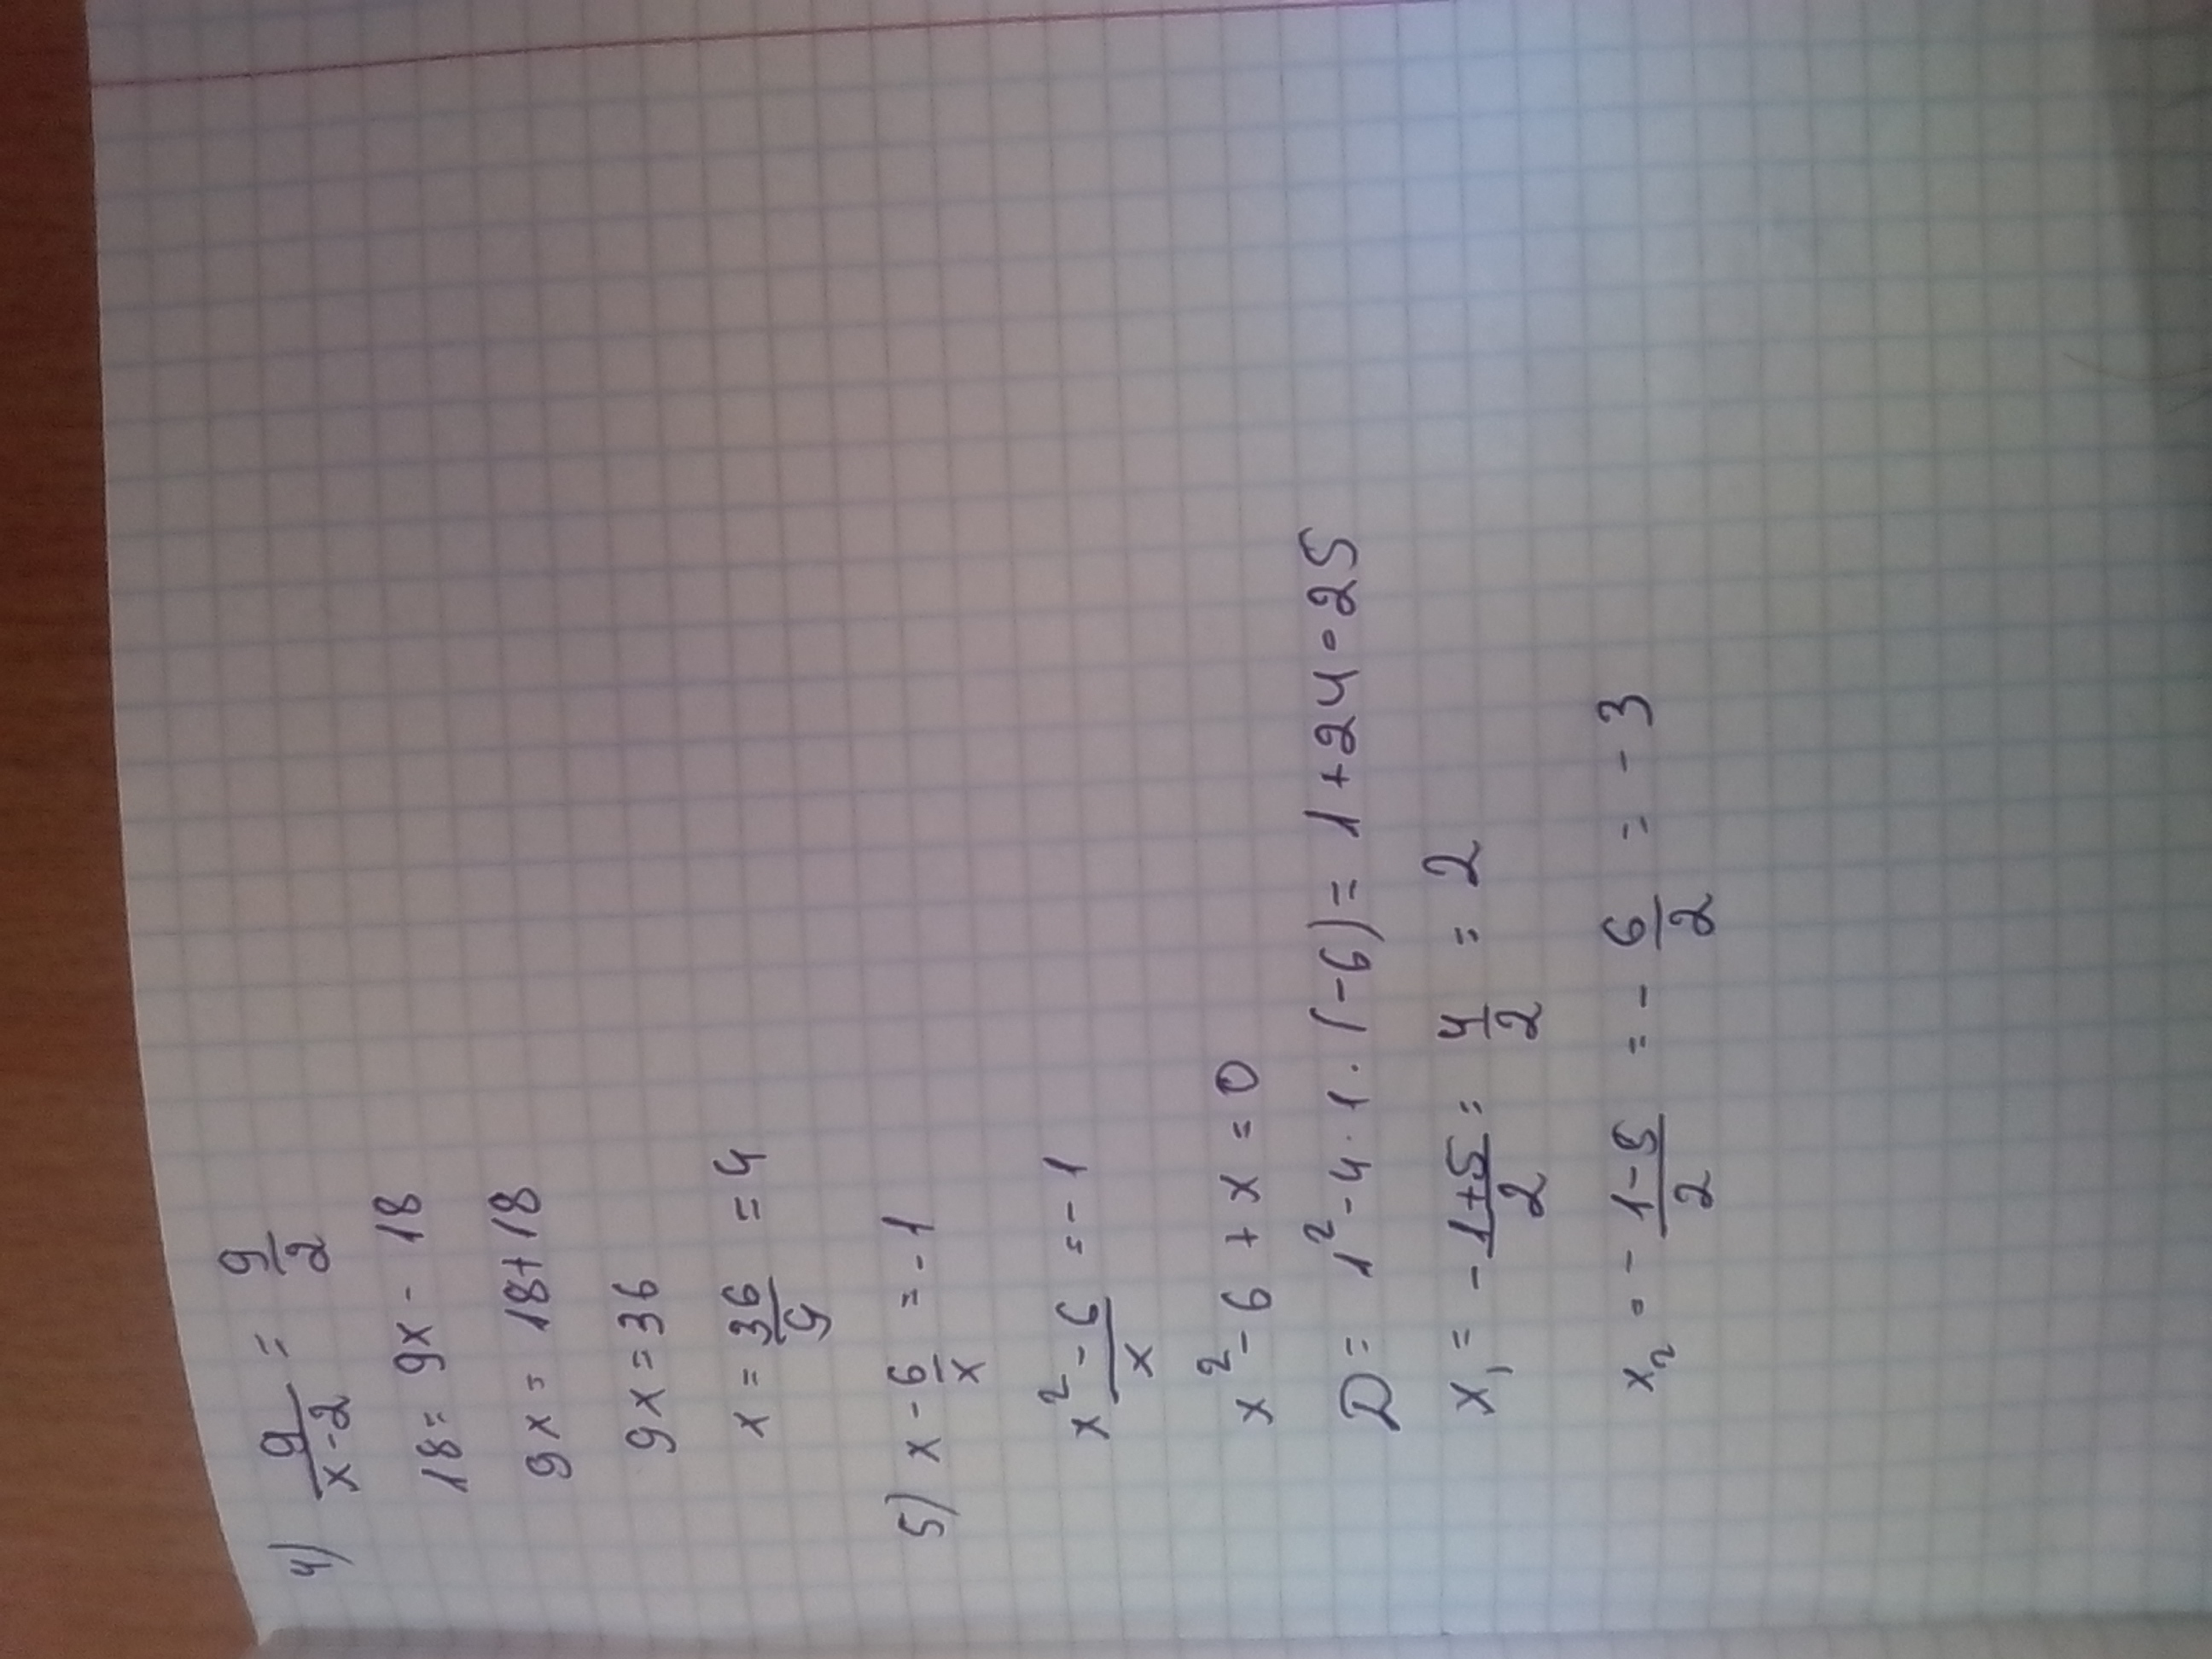 4) 9/(x-2) = 9/2
18 = 9x - 18
9x = 18 + 18
9x = 36
x = 36/9 = 4
5) x - 6/x = -1
(x² - 6)/x = -1
x² - 6 + x = 0
D = 1² - 4 · 1 · (-6) = 1 + 24 = 25
x₁ = -(1+5)/2 = 4/2 = 2
x₂ = -(1-5)/2 = -6/2 = -3